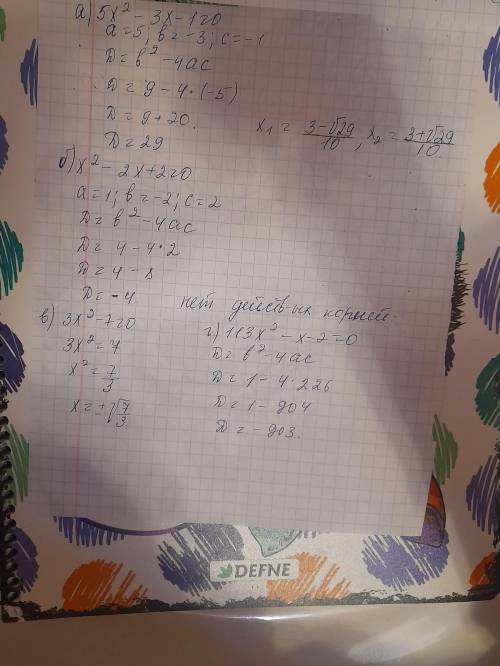 а) 5x² - 3x - 1=0
a = 5; в = -3; c = -1
D = в² - 4ac
D = 9 - 4 * (-5)
D = 9 + 20.
D = 29
x₁ = 3-√29/10, x₂ = 3+√29/10.
б) x² - 2x + 2=0
a = 1; в = -2; c = 2
D = в² - 4ac
D = 4 - 4 * 2
D = 4 - 8
D = - 4
нет действ-ых корней.
в) 3x² - 7=0
3x² = 7
x² = 7/3
x = ±√7/3
г) 113x² - x - 2 = 0
D = в² - 4ac
D = 1 - 4 * 226
D = 1 - 904
D = - 903.
DEFNE